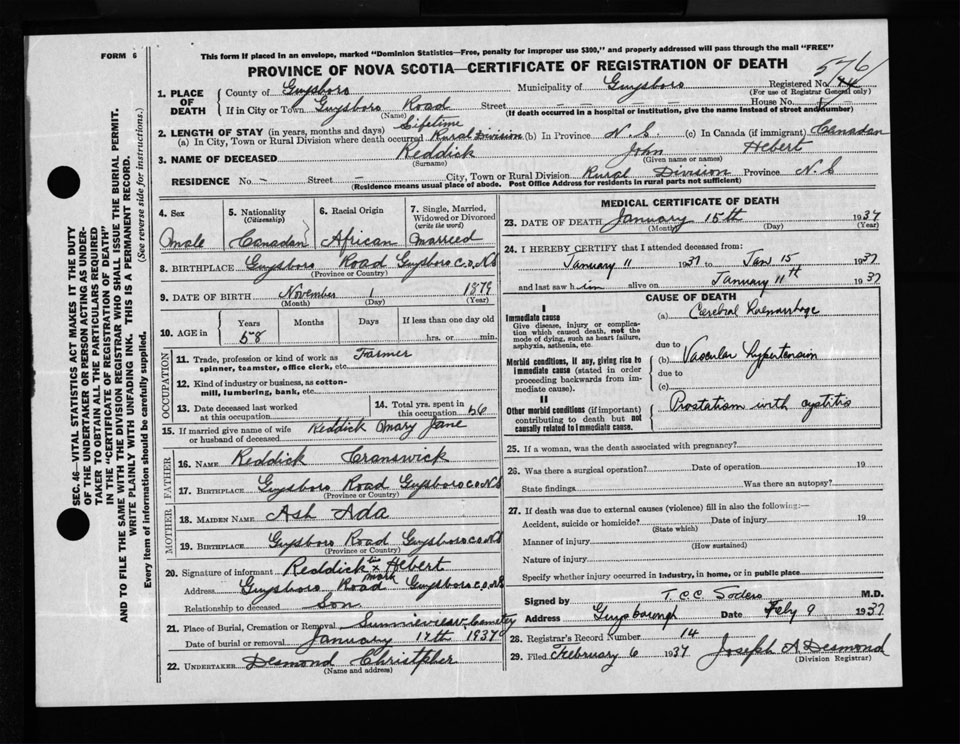 FORM 6
This form if placed in an envelope, marked "Dominion Statistics—Free, penalty for improper use $300," and properly addressed will pass through the mail "FREE"
576
PROVINCE OF NOVA SCOTIA—CERTIFICATE OF REGISTRATION OF DEATH
SEC. 46—VITAL STATISTICS ACT MAKES IT THE DUTY
OF THE UNDERTAKER OR PERSON ACTING AS UNDER-
TAKER TO OBTAIN ALL THE PARTICULARS REQUIRED
IN THE "CERTIFICATE OF REGISTRATION OF DEATH"
AND TO FILE THE SAME WITH THE DIVISION REGISTRAR WHO SHALL ISSUE THE BURIAL PERMIT.
WRITE PLAINLY WITH UNFADING INK. THIS IS A PERMANENT RECORD.
Every item of information should be carefully supplied. (See reverse side for instructions.)
1. PLACE OF DEATH County of Guysboro Municipality of Guysboro Registered No.
(For use of Registrar General only)
If in City or Town Guysboro Road Street House No.
(Name) (If death occurred in a hospital or institution, give the name instead of street and number)
2. LENGTH OF STAY (in years, months and days) Lifetime
(a) In City, Town or Rural Division where death occurred Rural Division (b) In Province N.S. (c) In Canada (if immigrant) Canadian
3. NAME OF DECEASED Reddick John Hebert
(Surname) (Given name or names)
RESIDENCE No. – Street – City, Town or Rural Division Rural Division Province N.S
(Residence means usual place of abode. Post Office Address for residents in rural parts not sufficient)
4. Sex
male
5. Nationality
(Citizenship)
Canadian
6. Racial Origin
African
7. Single, Married,
Widowed or Divorced
(write the word)
Married
8. BIRTHPLACE Guysboro Road Guysboro Co, N.S
(Province or Country)
9. DATE OF BIRTH November 1 1879
(Month) (Day) (Year)
10. AGE in Years Months Days If less than one day old
58 hrs. or min.
OCCUPATION
11. Trade, profession or kind of work as Farmer
spinner, teamster, office clerk, etc.
12. Kind of industry or business, as cotton-
mill, lumbering, bank, etc.
13. Date deceased last worked
at this occupation
14. Total yrs. spent in
this occupation 56
15. If married give name of wife
or husband of deceased Reddick Mary Jane
FATHER
16. NAME Reddick Cranswick
17. BIRTHPLACE Guysboro Road Guysboro Co N.S
(Province or Country)
MOTHER
18. MAIDEN NAME Ash Ada
19. BIRTHPLACE Guysboro Road Guysboro Co N.S
(Province or Country)
20. Signature of informant Reddick his x mark Hebert
Address Guysboro Road Guysboro Co, N.S
Relationship to deceased Son
21. Place of Burial, Cremation or Removal Cemetery
Date of burial or removal January 17th 1937
22. UNDERTAKER Desmond Christpher
(Name and address)
MEDICAL CERTIFICATE OF DEATH
23. DATE OF DEATH January 15th 1937
(Month) (Day) (Year)
24. I HEREBY CERTIFY that I attended deceased from:
January 11 1937 to Jan 15 1937
and last saw him alive on January 11th 1937
CAUSE OF DEATH
I
Immediate cause
Give disease, injury or complica-
tion which caused death, not the
mode of dying, such as heart failure,
asphyxia, asthenia, etc.
(a) Cerebral Haemorrhage
due to
Morbid conditions, if any, giving rise to
immediate cause (stated in order
proceeding backwards from im-
mediate cause).
(b) Vascular hypertension
due to
(c)
II
Other morbid conditions (if important)
contributing to death but not
causally related to immediate cause.
Prostatism with cystitis
25. If a woman, was the death associated with pregnancy?
26. Was there a surgical operation? Date of operation 19
State findings Was there an autopsy?
27. If death was due to external causes (violence) fill in also the following:—
Accident, suicide or homicide? Date of injury 19
(State which)
Manner of injury
(How sustained)
Nature of injury
Specify whether injury occurred in industry, in home, or in public place
Signed by T C C Soders M.D.
Address Guysborough Date Feby 9 1937
28. Registrar's Record Number 14
29. Filed February 6 1937 Joseph A Desmond
(Division Registrar)